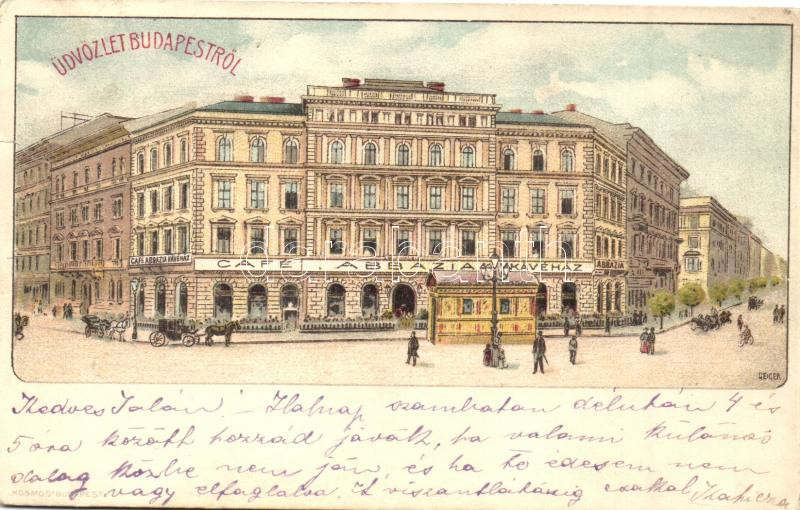 ÜDVÖZLET BUDAPESTRŐL
CAFÉ ABBAZIA KÁVÉHÁZ
CAFÉ ABBAZIA KÁVÉHÁZ
ABBAZIA
darabanth
GEIGER
Kedves Ialán! – Holnap szombaton délután 4 és
5 óra között hozzád jövök, ha valami különös
dolog közbe nem jön, és ha te édesem nem
vagy elfoglalva. A viszontlátásig csókkal
"KOSMOS" BUDAPEST